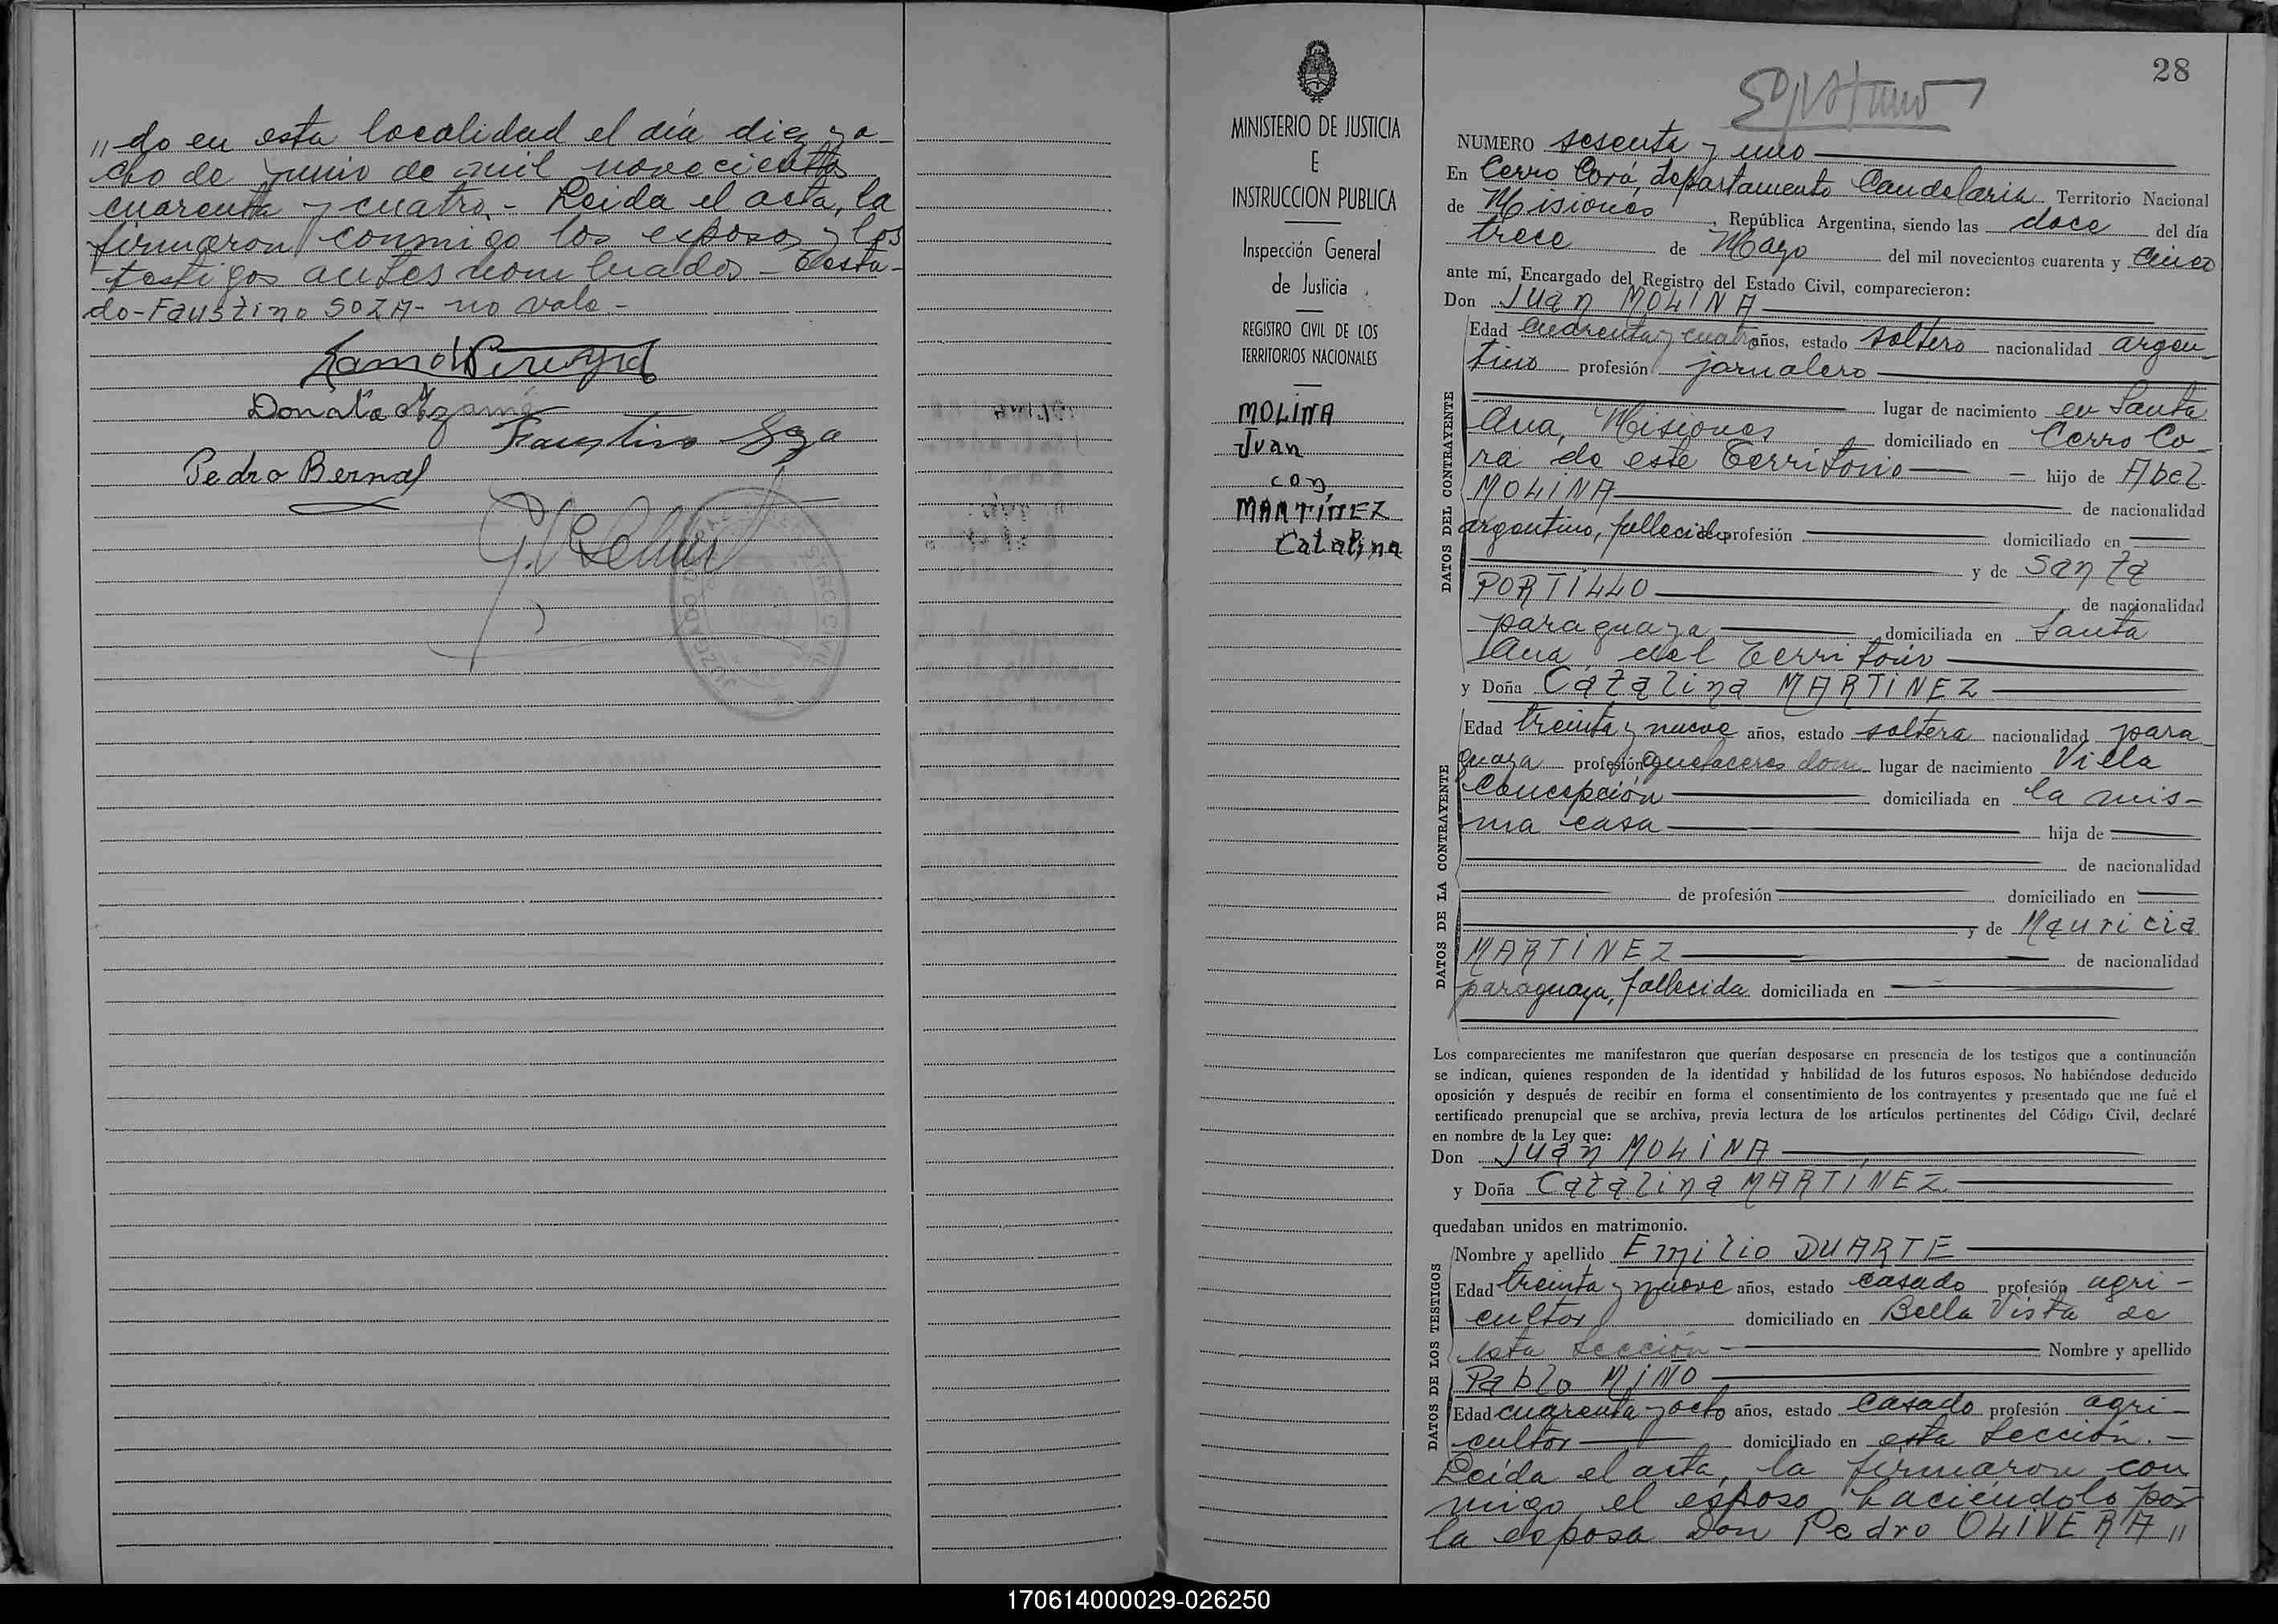 "do en esta localidad el día diez y o-
cho de junio de mil novecientos
cuarenta y cuatro.- Leida el acta, la
firmaron conmigo los esposos y los
testigos antes nombrados - Testa-
do-Faustino SOZA- no vale-
Donata
Faustino Soza
Pedro Bernal
28
MINISTERIO DE JUSTICIA
E
INSTRUCCION PUBLICA
Inspección General
de Justicia
REGISTRO CIVIL DE LOS
TERRITORIOS NACIONALES
MOLINA
Juan
con
MARTÍNEZ
Catalina
NUMERO sesenta y uno
En Cerro Corá, departamento Candelaria Territorio Nacional
de Misiones, República Argentina, siendo las doce del día
trece de Mayo del mil novecientos cuarenta y cinco
ante mí, Encargado del Registro del Estado Civil, comparecieron:
Don Juan MOLINA
DATOS DEL CONTRAYENTE
Edad cuarenta y cuatro años, estado soltero nacionalidad argen-
tino profesión jornalero
lugar de nacimiento en Santa
Ana, Misiones domiciliado en Cerro Co-
rá de este Territorio - hijo de Abel
MOLINA de nacionalidad
argentino, fallecido profesión domiciliado en
y de Santa
PORTILLO de nacionalidad
paraguaya domiciliada en Santa
Ana del Territorio
y Doña Catalina MARTINEZ
DATOS DE LA CONTRAYENTE
Edad treinta y nueve años, estado soltera nacionalidad para
guaya profesión quehaceres dom lugar de nacimiento Villa
Concepción domiciliada en la mis-
ma casa hija de
de nacionalidad
de profesión domiciliado en
y de Mauricia
MARTINEZ de nacionalidad
paraguaya, fallecida domiciliada en
Los comparecientes me manifestaron que querían desposarse en presencia de los testigos que a continuación
se indican, quienes responden de la identidad y habilidad de los futuros esposos. No habiéndose deducido
oposición y después de recibir en forma el consentimiento de los contrayentes y presentado que me fué el
certificado prenupcial que se archiva, previa lectura de los artículos pertinentes del Código Civil, declaré
en nombre de la Ley que:
Don Juan MOLINA
y Doña Catalina MARTINEZ
quedaban unidos en matrimonio.
DATOS DE LOS TESTIGOS
Nombre y apellido Emilio DUARTE
Edad treinta y nueve años, estado casado profesión agri-
cultor domiciliado en Bella Vista de
esta Sección - Nombre y apellido
Pablo MIÑO
Edad cuarenta y octo años, estado casado profesión agri-
cultor domiciliado en esta Sección.-
Leída el acta, la firmaron con
migo el esposo haciéndolo por
la esposa Don Pedro OLIVERA "
170614000029-026250